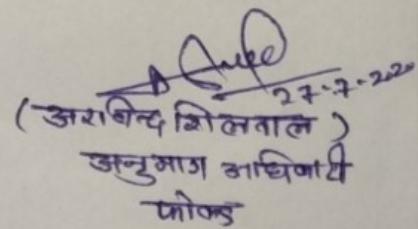 27-7-2020
(अरविन्द शिलवाल)
अनुभाग अधिकारी